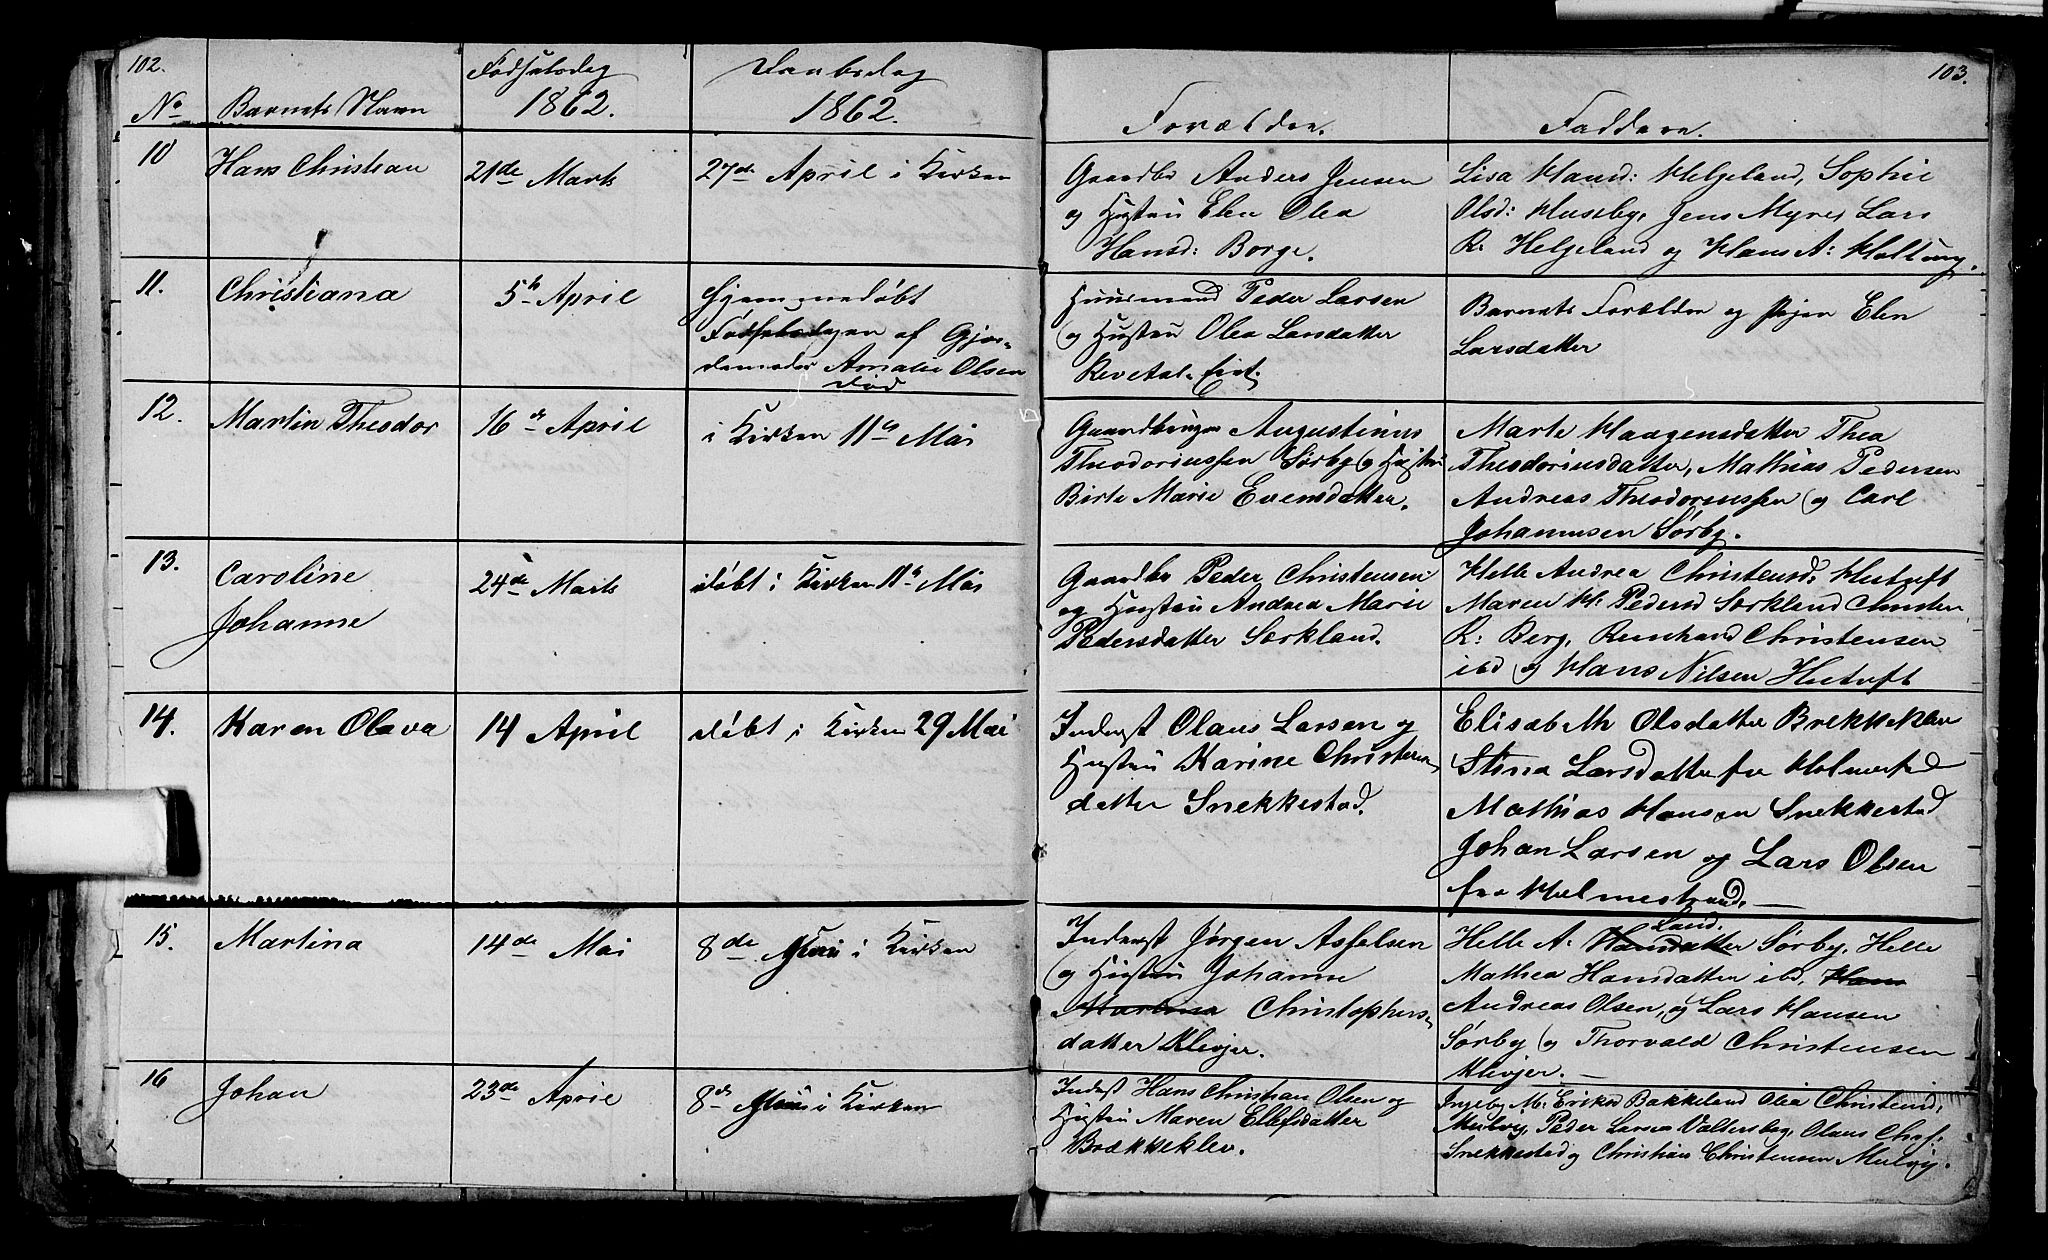 102.
No Barnets Navn
Fødselsdag
1862.
Daabsdag
1862.
10
Hans Christian
21de Marts
27de April i Kirken
11.
Christiana
5te April
Hjemmedøbt
Fødselsdagen af Gjor-
demoder Amalie Olsen
død
12.
Martin Theodor
16de April
i Kirken 11te Mai
13.
Caroline
Johanne
24de Marts
døbt i Kirken 11te Mai
14.
Karen Olava
14 April
døbt i Kirken 29 Mai
15.
Martina
14de Mai
8de Juni i Kirken
16
Johan
23de April
8de Juni i Kirken
103.
Forældre.
Faddere.
Gaardbr Anders Jensen
og Hustru Elen Olea
Hansd: Borge.
Lisa Hansd: Helgeland, Sophie
Olsd: Huseby, Jens Myre, Lars
R. Helgeland og Hans A: Holtung.
Huusmand Peder Larsen
og Hustru Olea Larsdatter
Revetal-eiet.
Barnets Forældre og Pigen Elen
Larsdatter
Gaardbruger Augustinus
Theodoriussen Sørby og Hustru
Birte Marie Evensdatter.
Marte Haagensdatter Thea
Theodoriusdatter, Mathias Pedersen
Andreas Theodoriussen og Carl
Johannesen Sørby.
Gaardbr Peder Christensen
og Hustru Andrea Marie
Pedersdatter Sørkland.
Helle Andrea Christensd: Hutuft
Maren H: Pedersd Sørkland Christen
R: Berg, Reinhard Christensen
ibd og Hans Nilsen Hutuft
Inderst Olaus Larsen og
Hustru Karine Christens-
datter Snekkestad.
Elisabeth Olsdatter Brekkeklev
Stina Larsdatter fra Holmestrd
Mathias Hansen Snekkestad
Johan Larsen og Lars Olsen
fra Holmestrand.
Inderst Jørgen Asselsen
og Hustru Johanne
Martina Christophers-
datter Klevjer.
Land.
Helle A. Hansdatter Sørby, Helle
Mathea Hansdatter ibd, Hans
Andreas Olsen, og Lars Hansen
Sørby og Thorvald Christensen
Klevjer.
Inderst Hans Christian Olsen og
Hustru Maren Ellefsdatter
Brækkeklev.
Ingeb. M: Eriksd Bakkeland Olea Christensd,
Mulvig, Peder Larsen Valtersbg, Olaus Chr.:
Snekkestad og Christian Christensen Mulvig.